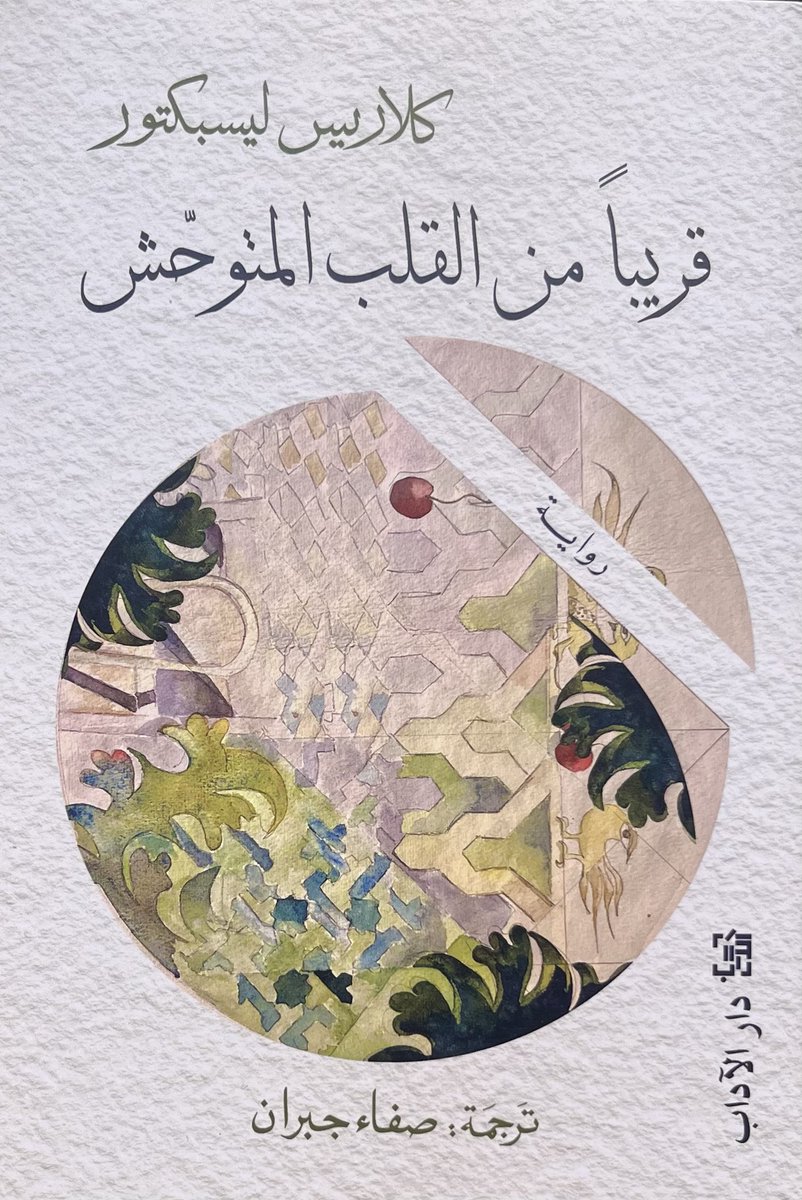 كلاريس ليسبكتور
قريباً من القلب المتوحّش
رواية
ترجَمَة: صفاء جبران
دار الآداب